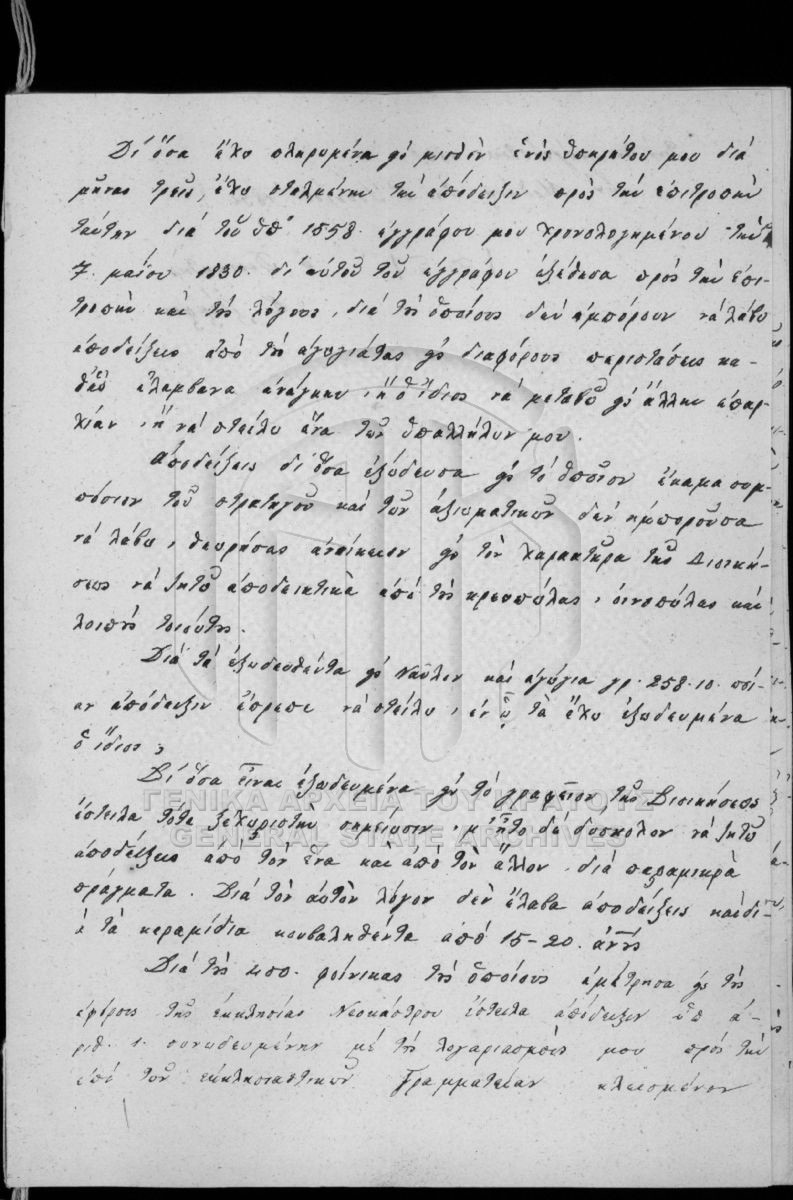 Δι' ὅσα ἔχω πληρωμένα εἰς μισθὸν ἑνὸς ὑπηρέτου μου διὰ
μῆνας τρεῖς, ἔχω σταλμένην τὴν ἀπόδειξιν πρὸς τὴν ἐπιτροπὴν
ταύτην διὰ τοῦ ὑπ' 1858. ἐγγράφου μου χρονολογημένου τὴν
7. μαΐου 1830. δι' αὐτοῦ τοῦ ἐγγράφου ἐξέθεσα πρὸς τὴν ἐπι-
τροπὴν καὶ τὴς λόγους, διὰ τὴς ὁποίους δὲν ἐμπόρουν νὰ λάβω
ἀποδείξεις ἀπὸ τὴς ἀγωγιάτας εἰς διαφόρους περιστάσεις κα-
θ' ἃς ἐλάμβανα ἀνάγκην, ἢ ὁ ἴδιος νὰ μεταβῶ εἰς ἄλλην ἐπαρ-
χίαν, ἢ νὰ στείλω ἕνα τῶν ὑπαλλήλων μου.
Ἀποδείξεις δι' ὅσα ἐξώδευσα εἰς τὸ ὁποῖον ἔκαμα συμ-
πόσιον τοῦ στρατηγοῦ καὶ τῶν ἀξιωματικῶν δὲν ἠμποροῦσα
νὰ λάβω, θεωρήσας ἀνοίκειον εἰς τὸν χαρακτῆρα τῆς Διοική-
σεως νὰ ζητῶ ἀποδεικτικὰ ἀπὸ τὴς κρεοπώλας, οἰνοπώλας καὶ
λοιπὴς τοιούτης.
Διὰ τὰ ἐξωδευθέντα εἰς Ναῦλον καὶ ἀγώγια γρ. 258.10. ποί-
αν ἀπόδειξιν ἔπρεπε νὰ στείλω, ἐν ᾧ τὰ ἔχω ἐξωδευμένα
ὁ ἴδιος;
Δι' ὅσα εἶναι ἐξωδευμένα εἰς τὸ γραφεῖον τῆς Διοικήσεως
ἔστειλα τότε ξεχωριστὴν σημείωσιν, ἦτο δὲ δύσκολον νὰ ζητῶ
ἀποδείξεις ἀπὸ τὸν ἕνα καὶ ἀπὸ τὸν ἄλλον, διὰ παραμικρὰ
πράγματα. Διὰ τὸν αὐτὸν λόγον δὲν ἔλαβα ἀποδείξεις καὶ δι-
ὰ τὰ κεραμίδια κουβαληθέντα ἀπὸ 15-20.
Διὰ τὴς 400. φοίνικας τὴς ὁποίους ἐμέτρησα εἰς τὴς
ἐφόρους τῆς ἐκκλησίας Νεοκάστρου ἔστειλα ἀπόδειξιν ὑπ' ἀ-
ριθ. 1. συνωδευμένην μὲ τὴς λογαριασμούς μου πρὸς τὴν
ἐπὶ τῶν ἐκκλησιαστικῶν Γραμματείαν κλεισμένον
ΓΕΝΙΚΑ ΑΡΧΕΙΑ ΤΟΥ ΚΡΑΤΟΥΣ
GENERAL STATE ARCHIVES